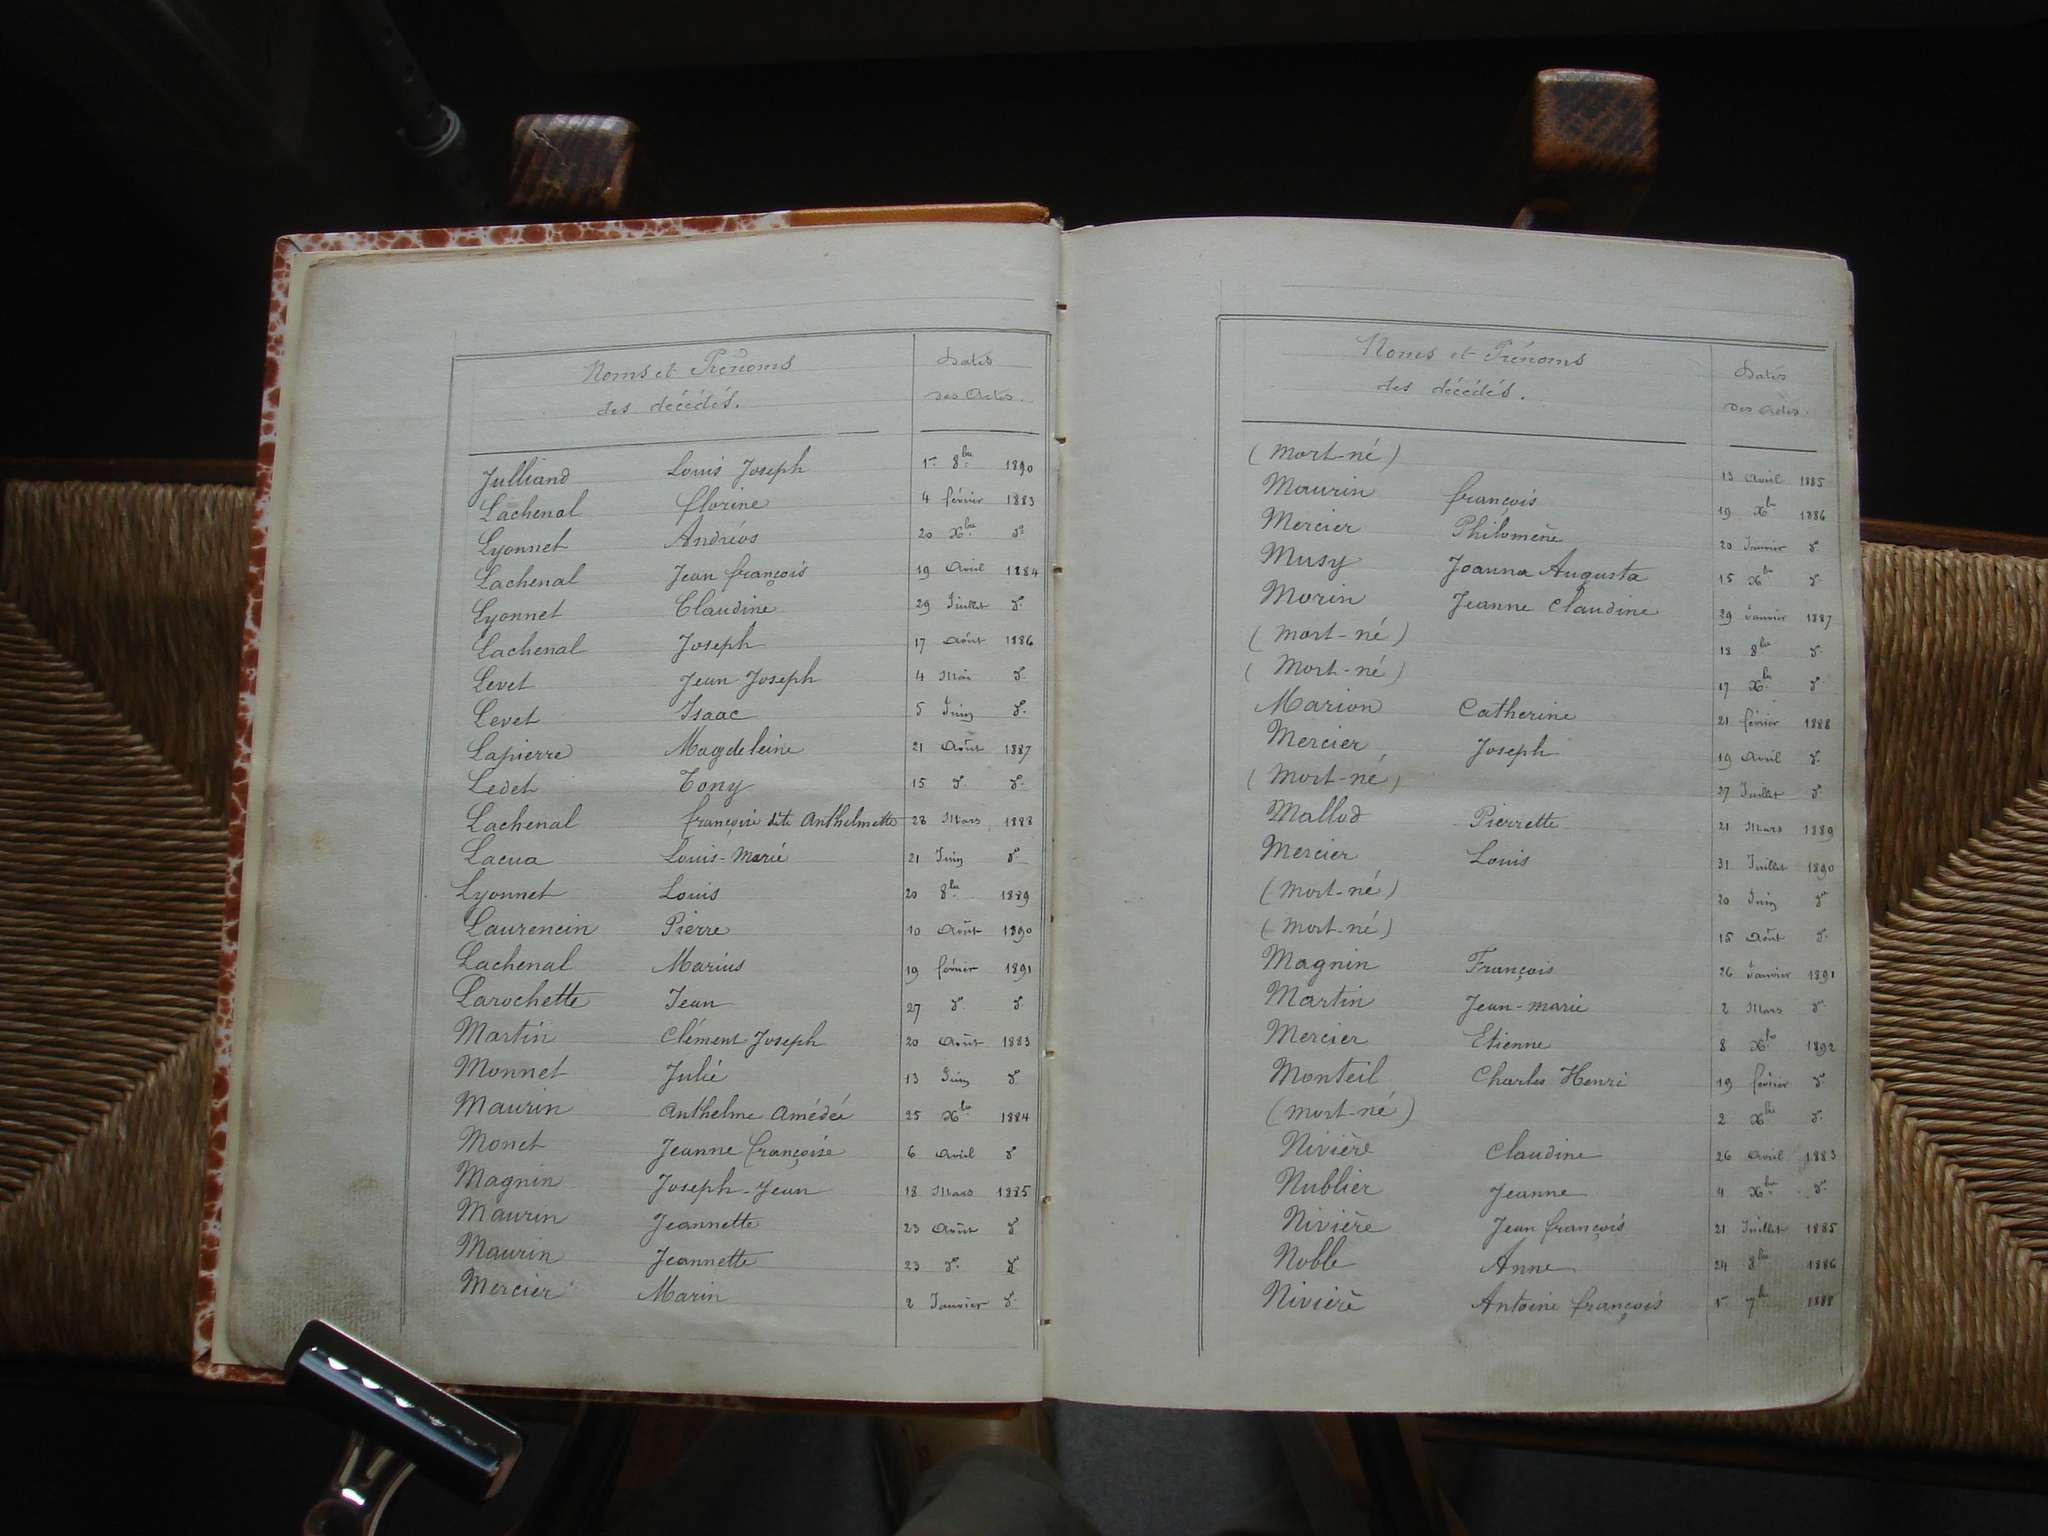 Noms et Prénoms
des décédés.
Dates
des Actes.
Julliand Louis Joseph 1er 8bre 1890
Lachenal florine 4 février 1883
Lyonnet Andréos 20 Xbre do
Lachenal Jean françois 19 Avril 1884
Lyonnet Claudine 29 Juillet do
Lachenal Joseph 17 Août 1886
Levet Jean Joseph 4 Mai do
Levet Isaac 5 Juin do
Lapierre Magdeleine 21 Août 1887
Ledet Tony 15 do do
Lachenal françoise dite Anthelmette 28 Mars 1888
Lacua Louis-Marie 21 Juin do
Lyonnet Louis 20 8bre 1889
Laurencin Pierre 10 Août 1890
Lachenal Marius 19 février 1891
Larochette Jean 27 do do
Martin Clément Joseph 20 Août 1883
Monnet Julie 13 Juin do
Maurin Anthelme Amédée 25 Xbre 1884
Monet Jeanne françoise 6 Avril do
Magnin Joseph-Jean 18 Mars 1885
Maurin Jeannette 23 Août do
Maurin Jeannette 23 do do
Mercier Marin 2 Janvier do
Noms et Prénoms
des décédés.
Dates
des Actes.
(Mort-né) 13 Avril 1885
Maurin françois 19 Xbre 1886
Mercier Philomène 20 Janvier do
Musy Joanna Augusta 15 Xbre do
Morin Jeanne Claudine 29 Janvier 1887
(Mort-né) 18 8bre do
(Mort-né) 17 Xbre do
Marion Catherine 21 février 1888
Mercier Joseph 19 Avril do
(Mort-né) 27 Juillet do
Mallod Pierrette 21 Mars 1889
Mercier Louis 31 Juillet 1890
(Mort-né) 20 Juin do
(Mort-né) 15 Août do
Magnin François 26 Janvier 1891
Martin Jean-Marie 2 Mars do
Mercier Etienne 8 Xbre 1892
Monteil Charles Henri 19 février do
(Mort-né) 2 Xbre do
Nivière Claudine 26 Avril 1883
Nublier Jeanne 4 Xbre do
Nivière Jean françois 21 Juillet 1885
Noble Anne 24 8bre 1886
Nivière Antoine françois 1er 7bre 1888